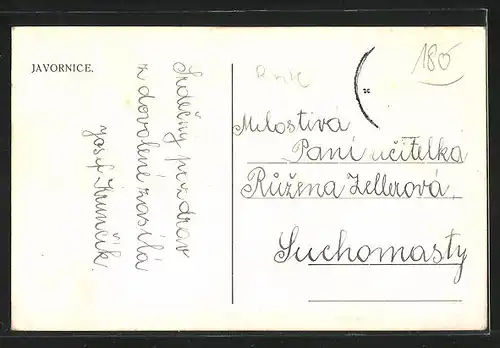 JAVORNICE.
Srdečný pozdrav
z dovolené zasílá
Josef
180
Milostivá
Paní učitelka
Růžena Zellerová,
Suchomasty